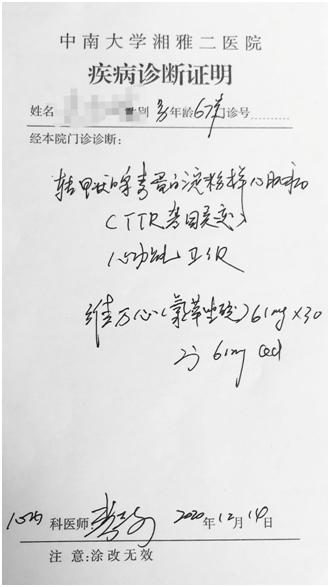 中南大学湘雅二医院
疾病诊断证明
姓名 性别 男 年龄 67岁 门诊号
经本院门诊诊断：
转甲状腺素蛋白淀粉样心肌病
（TTR基因突变）
心功能 Ⅱ级
维万心（氯苯唑酸）61mg×30
61mg qd
心内 科医师： 2020年12月14日
注 意：涂改无效